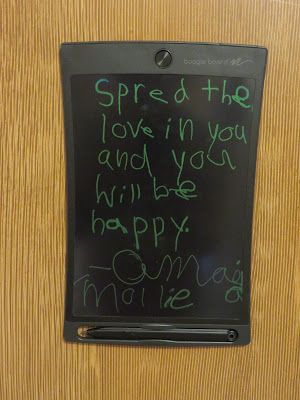 boogie board
Spred the
love in you
and you
will be
happy.